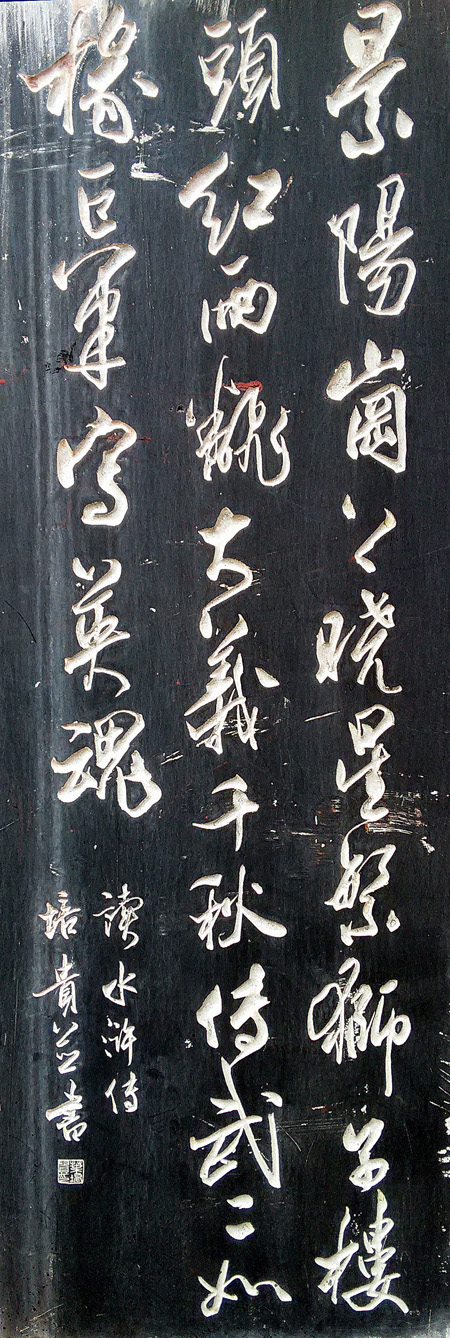 景陽崗上曉星繁獅子樓
頭紅雨翻古義千秋傳武二如
椽巨筆寫英魂
讀水滸傳
培貴并書